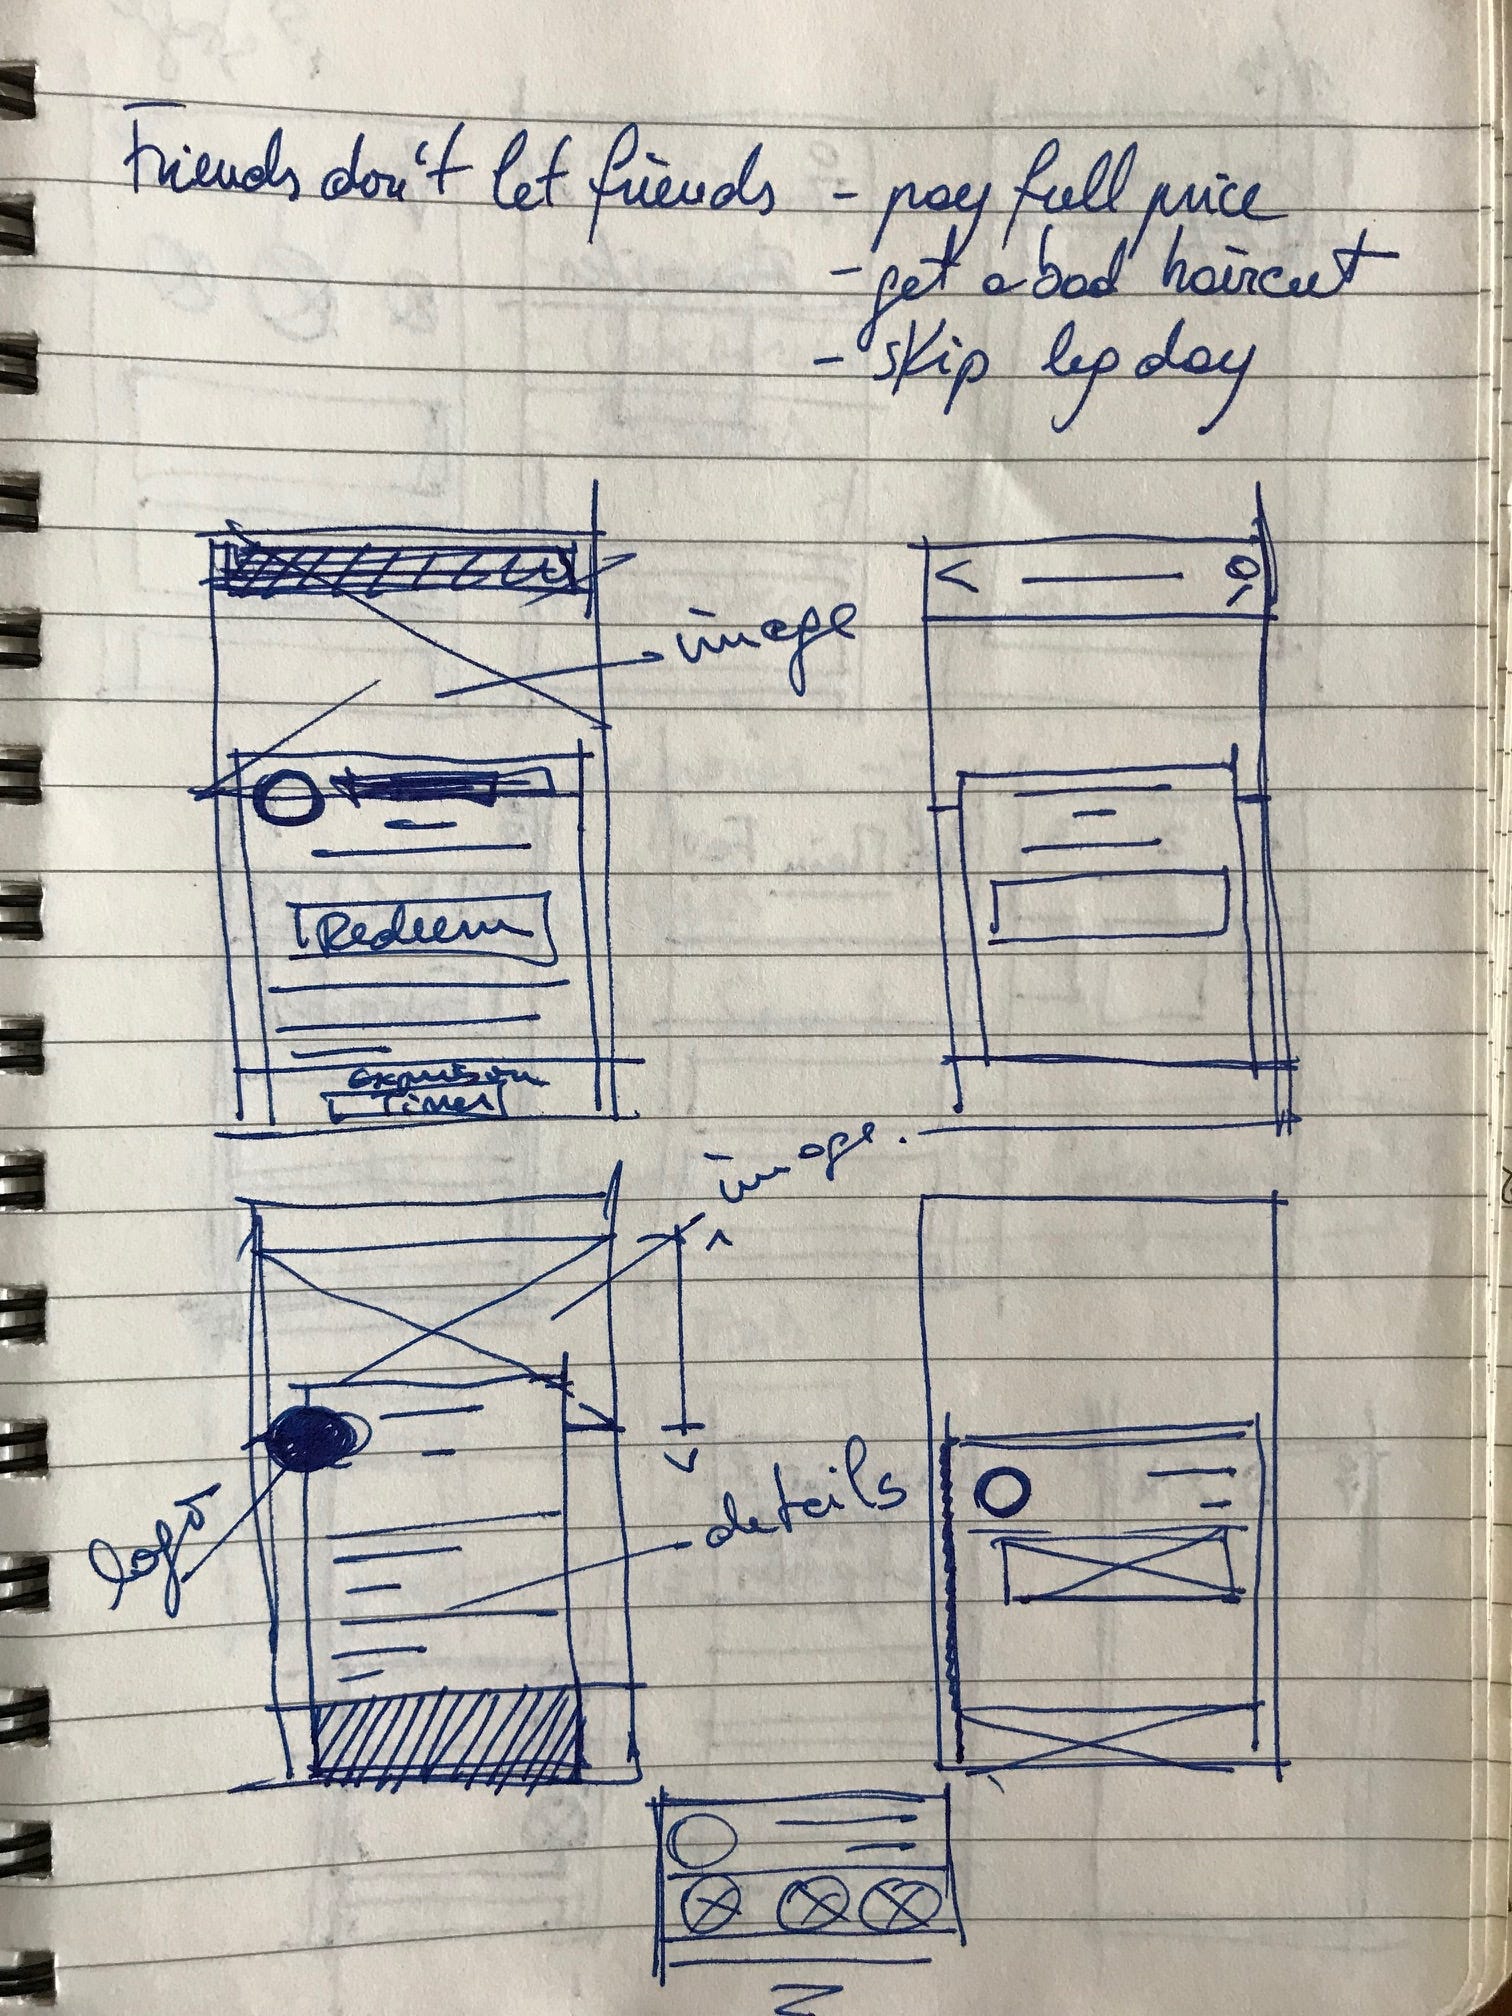 Friends don't let friends - pay full price
- get a bad haircut
- skip leg day
image
Redeem
expiration
Timer
image.
logo
details